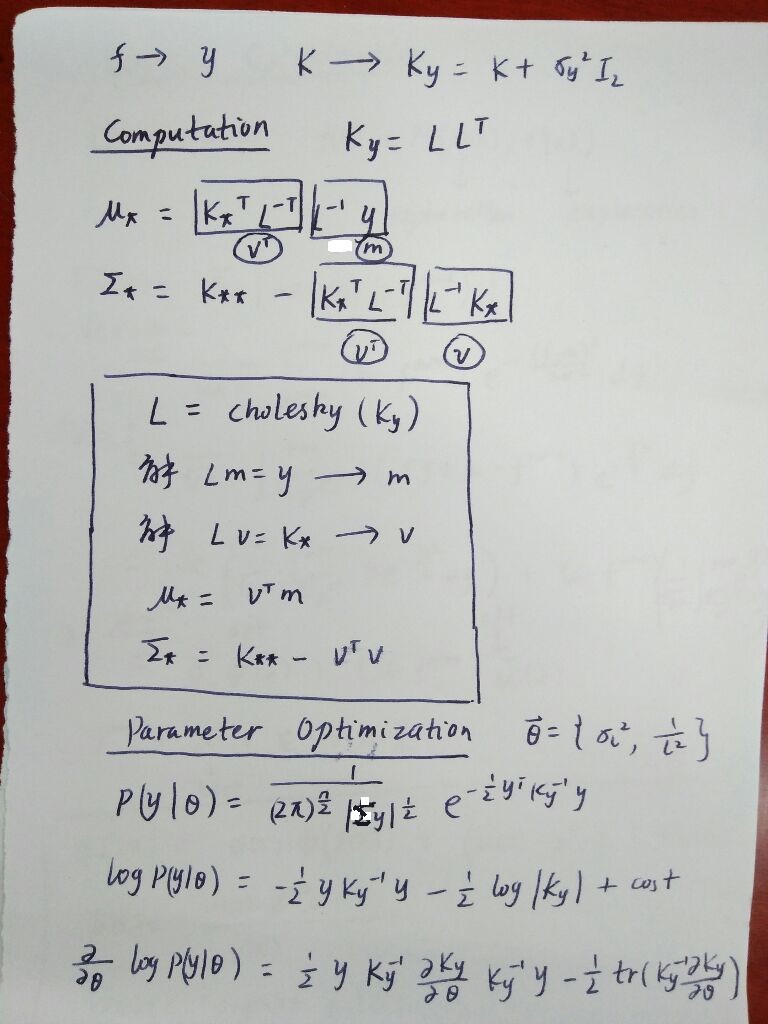 f → y K → Ky = K + σy² I₂
Computation Ky = L Lᵀ
μ* = K*ᵀ L⁻ᵀ L⁻¹ y
vᵀ m
Σ* = K** − K*ᵀ L⁻ᵀ L⁻¹ K*
vᵀ v
L = cholesky (Ky)
解 Lm = y → m
解 Lv = K* → v
μ* = vᵀm
Σ* = K** − vᵀv
Parameter Optimization θ⃗ = { σ², 1/l² }
P(y|θ) = 1/((2π)^(n/2) |Σy|^(1/2)) e^(−½ yᵀ Ky⁻¹ y)
log P(y|θ) = −½ y Ky⁻¹ y − ½ log |Ky| + cost
∂/∂θ log P(y|θ) = ½ y Ky⁻¹ ∂Ky/∂θ Ky⁻¹ y − ½ tr(Ky⁻¹ ∂Ky/∂θ)